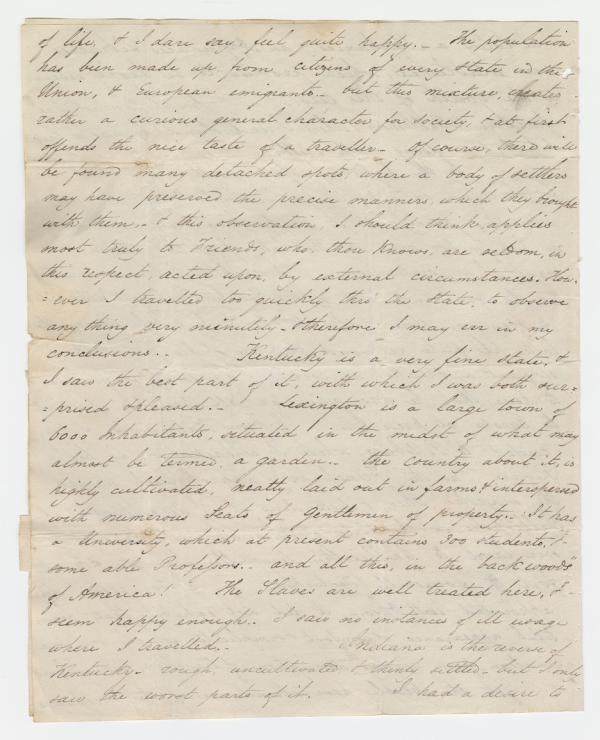 of life, & I dare say feel quite happy.– The population
has been made up from citizens of every state in the
Union, & European emigrants– but this mixture, creates
rather a curious general character for society, & at first
offends the nice taste of a traveller– Of course, there will
be found many detached spots, where a body of settlers
may have preserved the precise manners, which they brought
with them,– & this observation, I should think, applies
most truly to Friends, who, thou knows, are seldom, in
this respect, acted upon, by external circumstances. How-
=ever I travelled too quickly thro' the State, to observe
any thing very minutely– & therefore I may err in my
conclusions.. Kentucky is a very fine state, &
I saw the best part of it, with which I was both sur-
=prised & pleased.– Lexington is a large town of
6000 Inhabitants, situated in the midst of what may
almost be termed, a garden.– the country about it, is
highly cultivated, neatly laid out in farms, & interspersed
with numerous Seats of Gentlemen of property.– It has
a University, which at present contains 300 students, &
some able Professors.. and all this, in the "back woods"
of America! The Slaves are well treated here, &
seem happy enough.. I saw no instances of ill usage
where I travelled.– Indiana is the reverse of
Kentucky– rough, uncultivated & thinly settled– but I only
saw the worst parts of it. I had a desire to